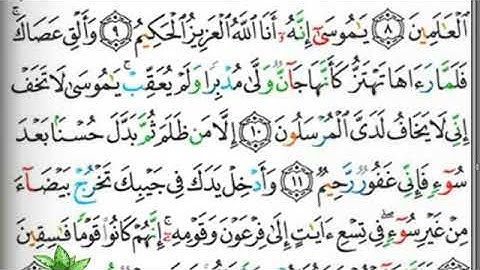 ٱلْعَٰلَمِينَ ۝٨ يَٰمُوسَىٰٓ إِنَّهُۥٓ أَنَا ٱللَّهُ ٱلْعَزِيزُ ٱلْحَكِيمُ ۝٩ وَأَلْقِ عَصَاكَ ۚ
فَلَمَّا رَءَاهَا تَهْتَزُّ كَأَنَّهَا جَآنٌّ وَلَّىٰ مُدْبِرًا وَلَمْ يُعَقِّبْ ۚ يَٰمُوسَىٰ لَا تَخَفْ
إِنِّى لَا يَخَافُ لَدَىَّ ٱلْمُرْسَلُونَ ۝١٠ إِلَّا مَن ظَلَمَ ثُمَّ بَدَّلَ حُسْنًۢا بَعْدَ
سُوٓءٍ فَإِنِّى غَفُورٌ رَّحِيمٌ ۝١١ وَأَدْخِلْ يَدَكَ فِى جَيْبِكَ تَخْرُجْ بَيْضَآءَ
مِنْ غَيْرِ سُوٓءٍ ۖ فِى تِسْعِ ءَايَٰتٍ إِلَىٰ فِرْعَوْنَ وَقَوْمِهِۦٓ ۚ إِنَّهُمْ كَانُوا۟ قَوْمًا فَٰسِقِينَ